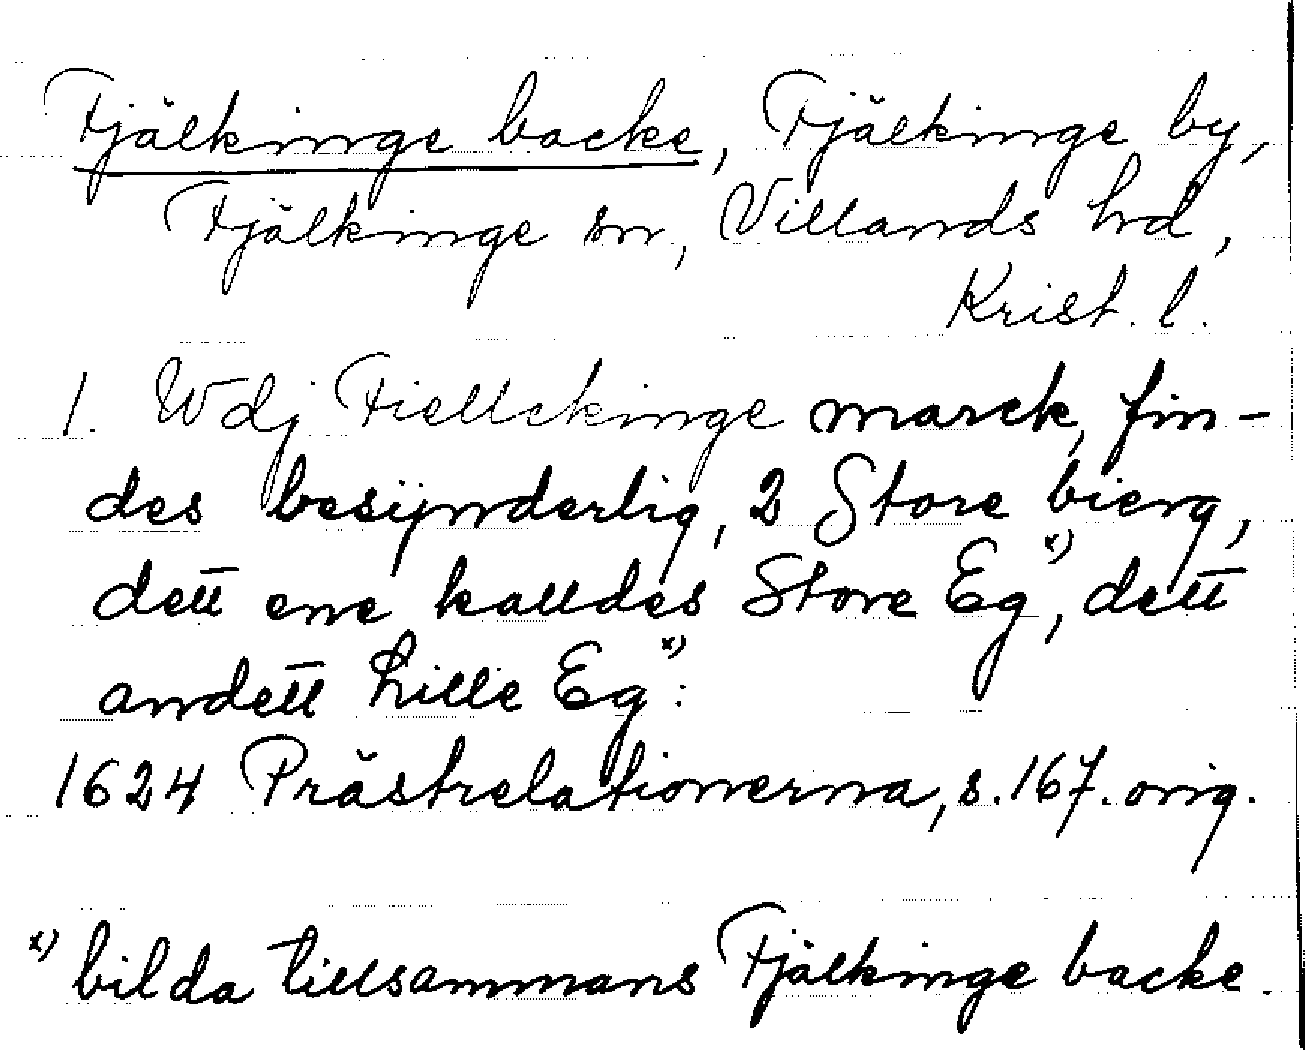 Fjälkinge backe, Fjälkinge by,
Fjälkinge sn, Villands hd,
Krist. l.
1. Wdj Fiellckinge marck, fin-
des besÿnderlig, 2 Store bierg,
dett ene kalldes Store Eg x), dett
andett Lille Eg x):
1624 Prästrelationerna, s. 167. orig.
x) bilda tillsammans Fjälkinge backe.